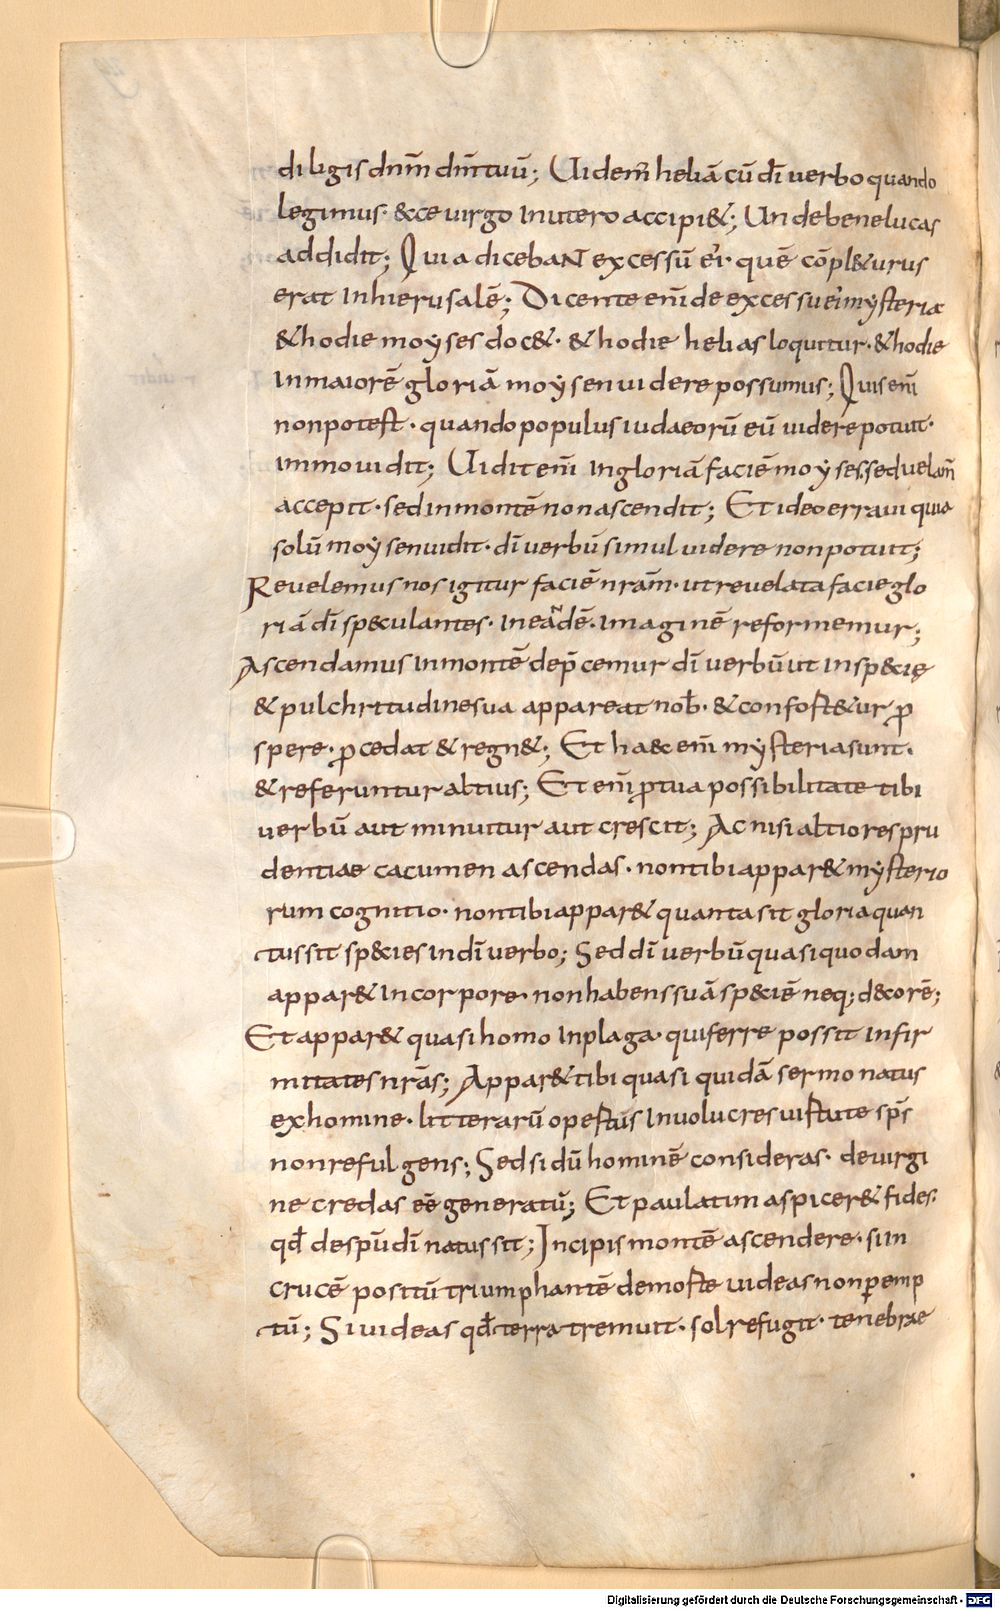 diligis dnm̄ dm̄ tuū; Uidem̄ heliā cū dī verbo quando
legimus· &cce virgo In utero accipi&; Un de bene lucas
addidit; Quia dicebaNt excessū ei' quē cōpl&urus
erat In hierusalē; Dicente em̄ de excessu ei' mysteria
& hodie moyses doc&· & hodie helias loquitur· & hodie
In maiorē gloriā moysen uidere possumus; Quis em̄
non potest· quando populus iudaeorū eū uidere potuit·
immo uidit; Uidit em̄ In gloriā faciē moyses. sed velam̄
accepit· sed in montē non ascendit; Et ideo erraui quia
solū moysen uidit· dī verbū simul uidere non potuit;
Revelemus nos igitur faciē nrām· ut revelata facie glo
riā dī sp&culantes· In eandē· Imaginē reformemur;
Ascendamus In montē dep̄cemur dī verbū ut In sp&cię
& pulchritudine sua appareat nob̄· & confort&ur p̱ro
spere· p̱rocedat & regn&; Et ha&c em̄ mysteria sunt·
& referuntur altius; Et em̄ pro tua possibilitate tibi
verbū aut minuitur aut crescit; Ac nisi altiores pru
dentiae cacumen ascendas· non tibi appar& mysterio
rum cognitio· non tibi appar& quanta sit gloria quan
tus sit sp&cies in dī verbo; Sed dī verbū quasi quodam
appar& In corpore· non habens suā sp&ciē neq; d&corē;
Et appar& quasi homo In plaga· qui ferre possit infir
mitates nrās; Appar& tibi quasi quidā sermo natus
ex homine· litterarū opertus Inuolucres uirtute sp̄s
non refulgens; Sed si dū hominē consideras· de virgi
ne credas eē generatū; Et paulatim aspicer& fides·
qd̄ de sp̄u dī natus sit; Incipis montē ascendere· si In
crucē positū triumphantē de morte uideas non peremp
tū; Si uideas qd̄ terra tremuit· sol refugit· tenebrae
Digitalisierung gefördert durch die Deutsche Forschungsgemeinschaft - DFG